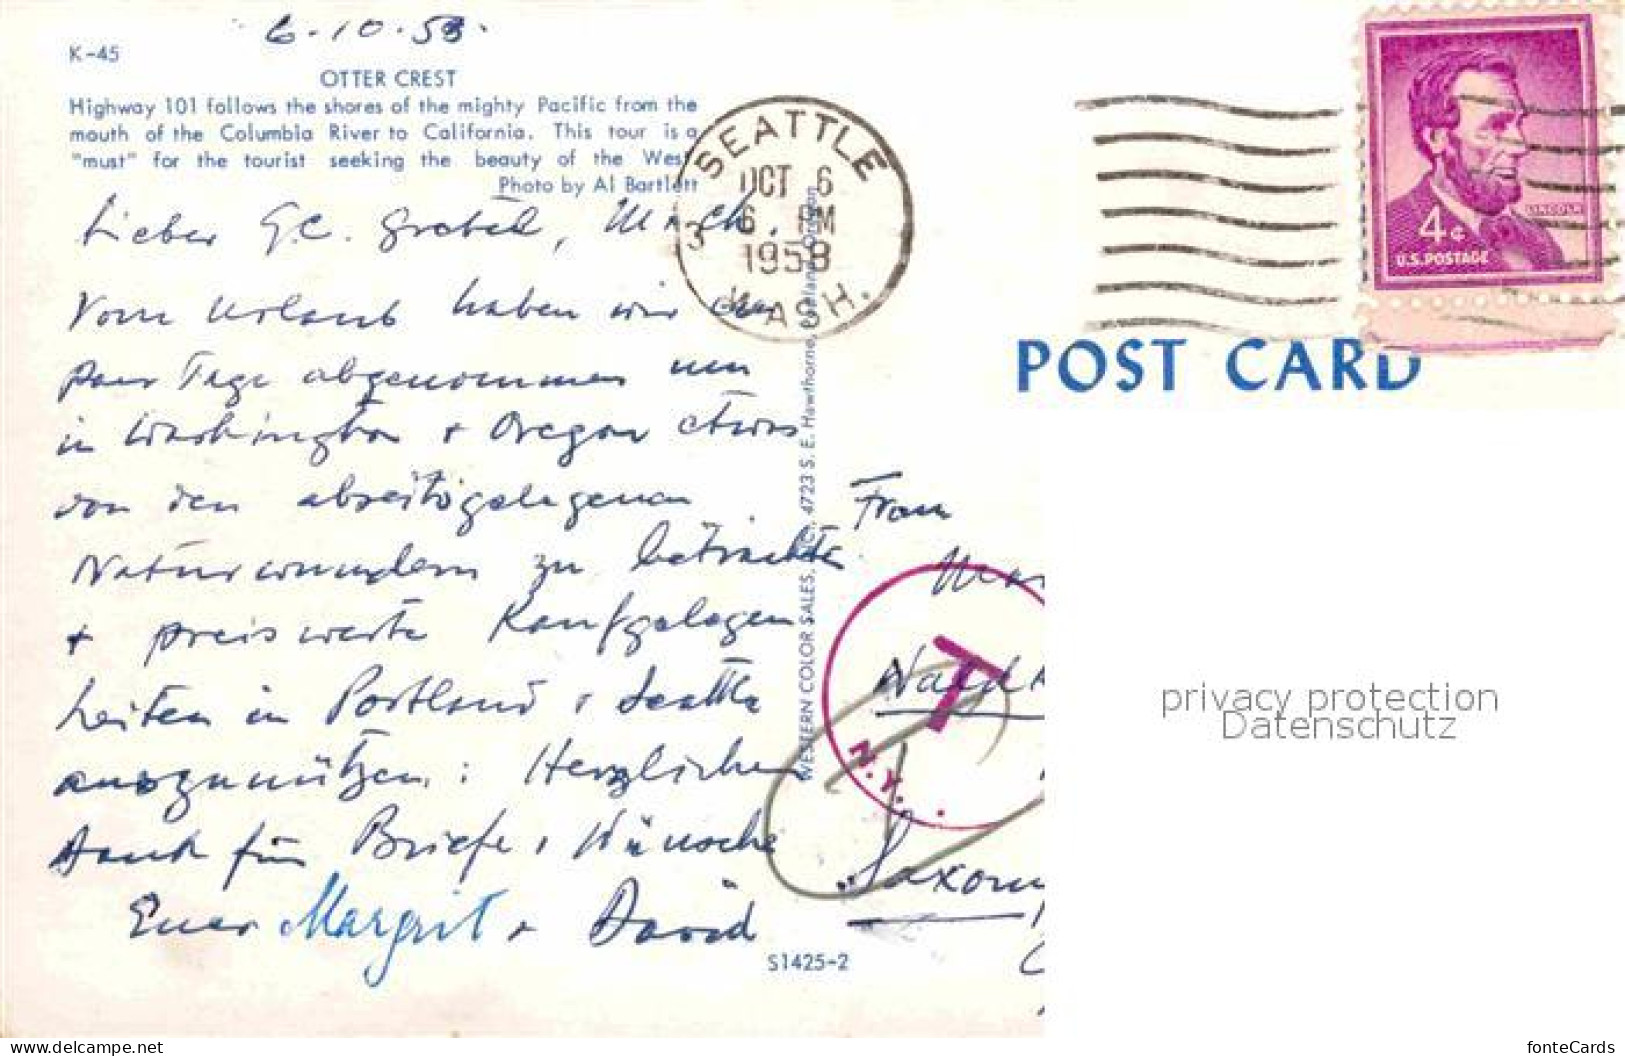 6.10.58.
K-45
OTTER CREST
Highway 101 follows the shores of the mighty Pacific from the
mouth of the Columbia River to California. This tour is a
"must" for the tourist seeking the beauty of the West
Photo by Al Bartlett
Lieber
Vom Urlaub haben wir ein
paar Tage abgenommen um
in Washington + Oregon etwas
von den abseitsgelegenen
Naturwundern zu betrachten
+ preiswerte Kaufgelegen
heiten in Portland + Seattle
auszunützen. Herzlichen
Dank für Briefe + Wünsche
Euer Margrit + David
S1425-2
WESTERN COLOR SALES, 4723 S. E. Hawthorne, Portland, Oregon
SEATTLE
3
OCT 6
6 PM
1958
WASH.
LINCOLN
4¢
U.S. POSTAGE
POST CARD
Frau
T
N.Y.
privacy protection
Datenschutz
www.delcampe.net
fonteCards